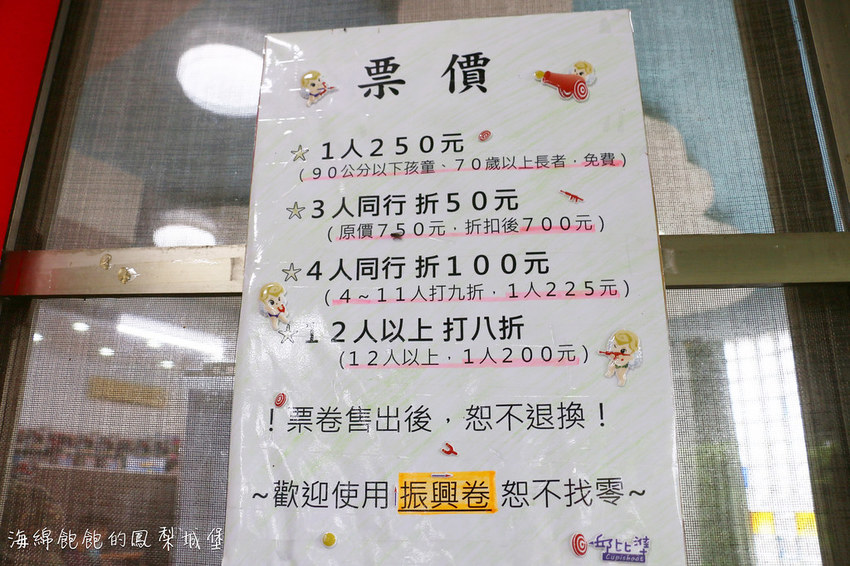 票價
☆１人２５０元
(９０公分以下孩童、７０歲以上長者，免費)
☆３人同行 折５０元
(原價７５０元，折扣後７００元)
☆４人同行 折１００元
(４~１１人打九折，１人２２５元)
☆１２人以上 打八折
(１２人以上，１人２００元)
！票卷售出後，恕不退換！
~歡迎使用振興卷 恕不找零~
邱比準
Cupishoot
海綿飽飽的鳳梨城堡